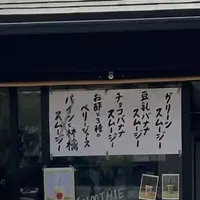 グリーン
スムージー
豆乳バナナ
スムージー
チョコバナナ
スムージー
お酢と3種の
ベリージュース
パインと林檎
スムージー
SMOOTHIE